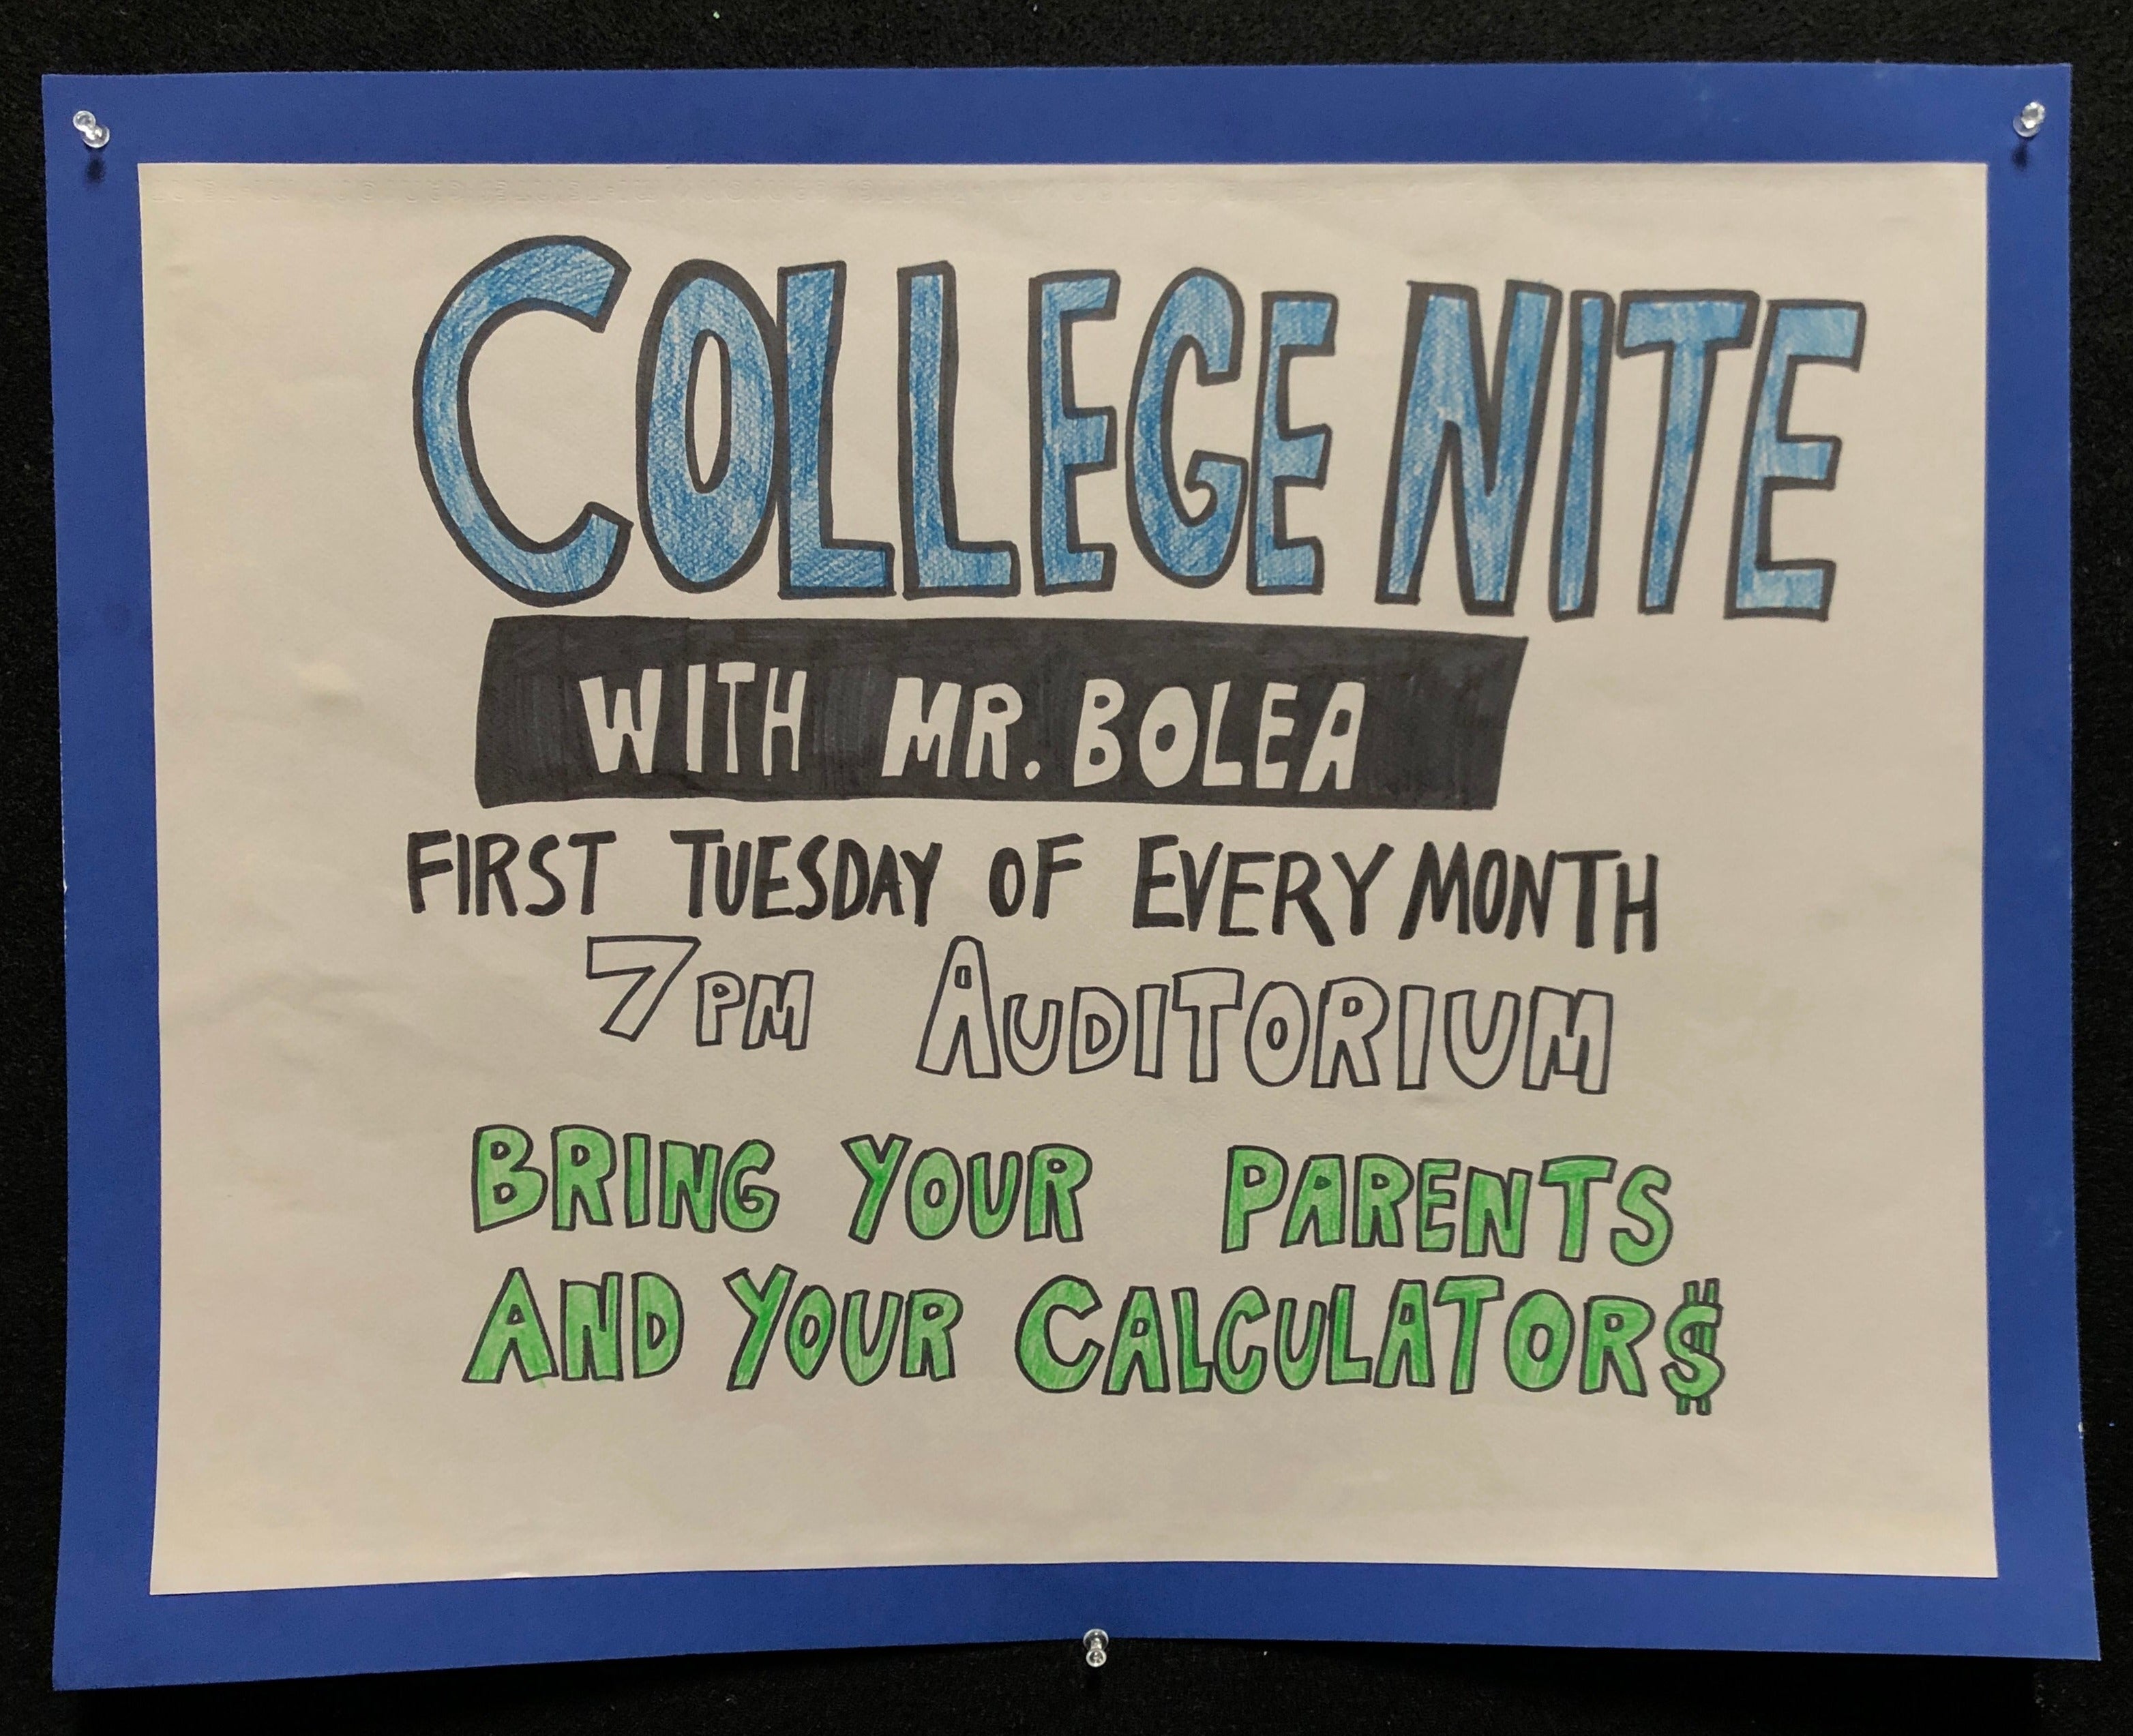 COLLEGE NITE
WITH MR. BOLEA
FIRST TUESDAY OF EVERY MONTH
7PM AUDITORIUM
BRING YOUR PARENTS
AND YOUR CALCULATOR$